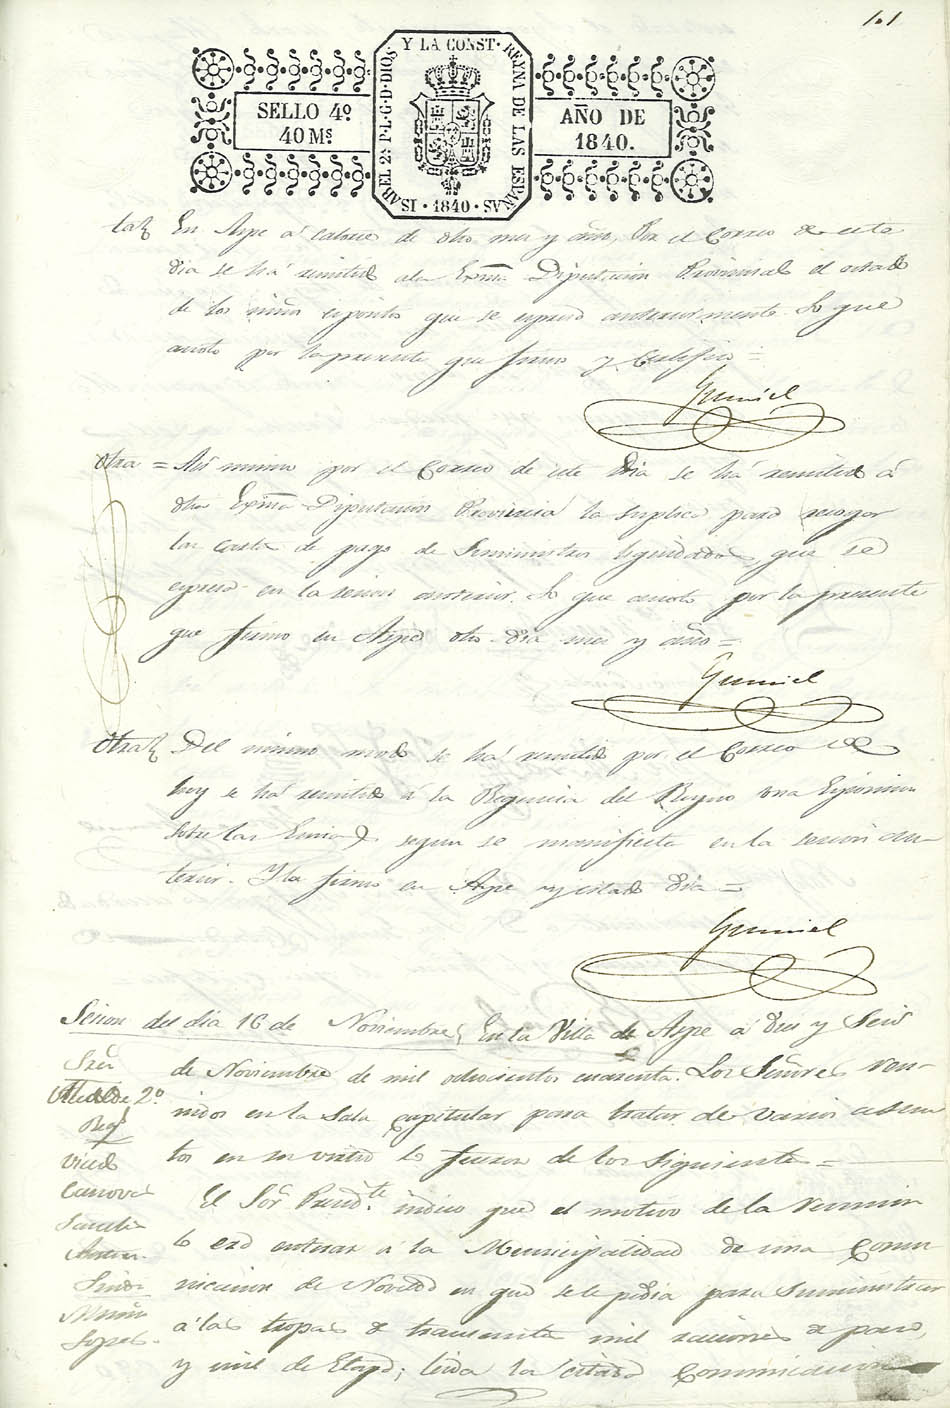 101
ISABEL 2ª P.L.G.D.DIOS. Y LA CONST. REYNA DE LAS ESPAÑAS · 1840 ·
SELLO 4º
40 Ms.
AÑO DE
1840.
En Aspe á catorce de dho mes y año, Por el Correo de este
dia se há remitido á la Exma Diputacion Provincial el estado
de los niños espositos que se espresó anteriormente. Lo que
anoto por la presente que firmo y Certifico =
Gumiel
Otra = Asi mismo por el Correo de este dia se há remitido á
dha Exma Diputacion Provincial la suplica para recoger
las cartas de pago de Suministros liquidados, que se
espresa en la sesion anterior. Lo que anoto por la presente
que firmo en Aspe dho dia mes y año =
Gumiel
Otra Del mismo modo se há remitido por el Correo de
hoy se há remitido á la Regencia del Reyno una Esposicion
sobre las segun se manifiesta en la sesion an-
terior. Y la firmo en Aspe y citado dia =
Gumiel
Sesion del dia 16 de Noviembre. En la Villa de Aspe á diez y seis
de Noviembre de mil ochocientos cuarenta. Los Señores reu-
nidos en la Sala capitular para tratar de varios asun
tos en su vista lo fueron de los siguientes =
El Sor Presidte indico que el motivo de la reunion
lo era enterar á la Municipalidad de una Comu
nicacion de Novelda en que se le pedia para suministrar
á las tropas de transeunte mil raciones de pan,
y mil de Etapa; leida la citada Comunicacion
Sres
Alcalde 2º
Regs
Vicedo
Canovas
Sanchez
Sindo
Lopez